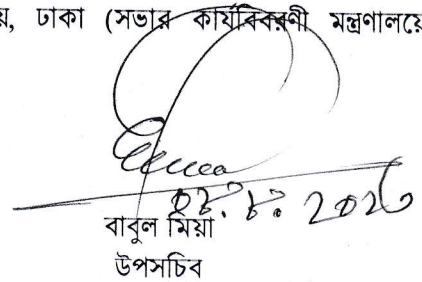 য়, ঢাকা (সভার কার্যবিবরণী মন্ত্রণালয়ে
বাবুল মিয়া
উপসচিব